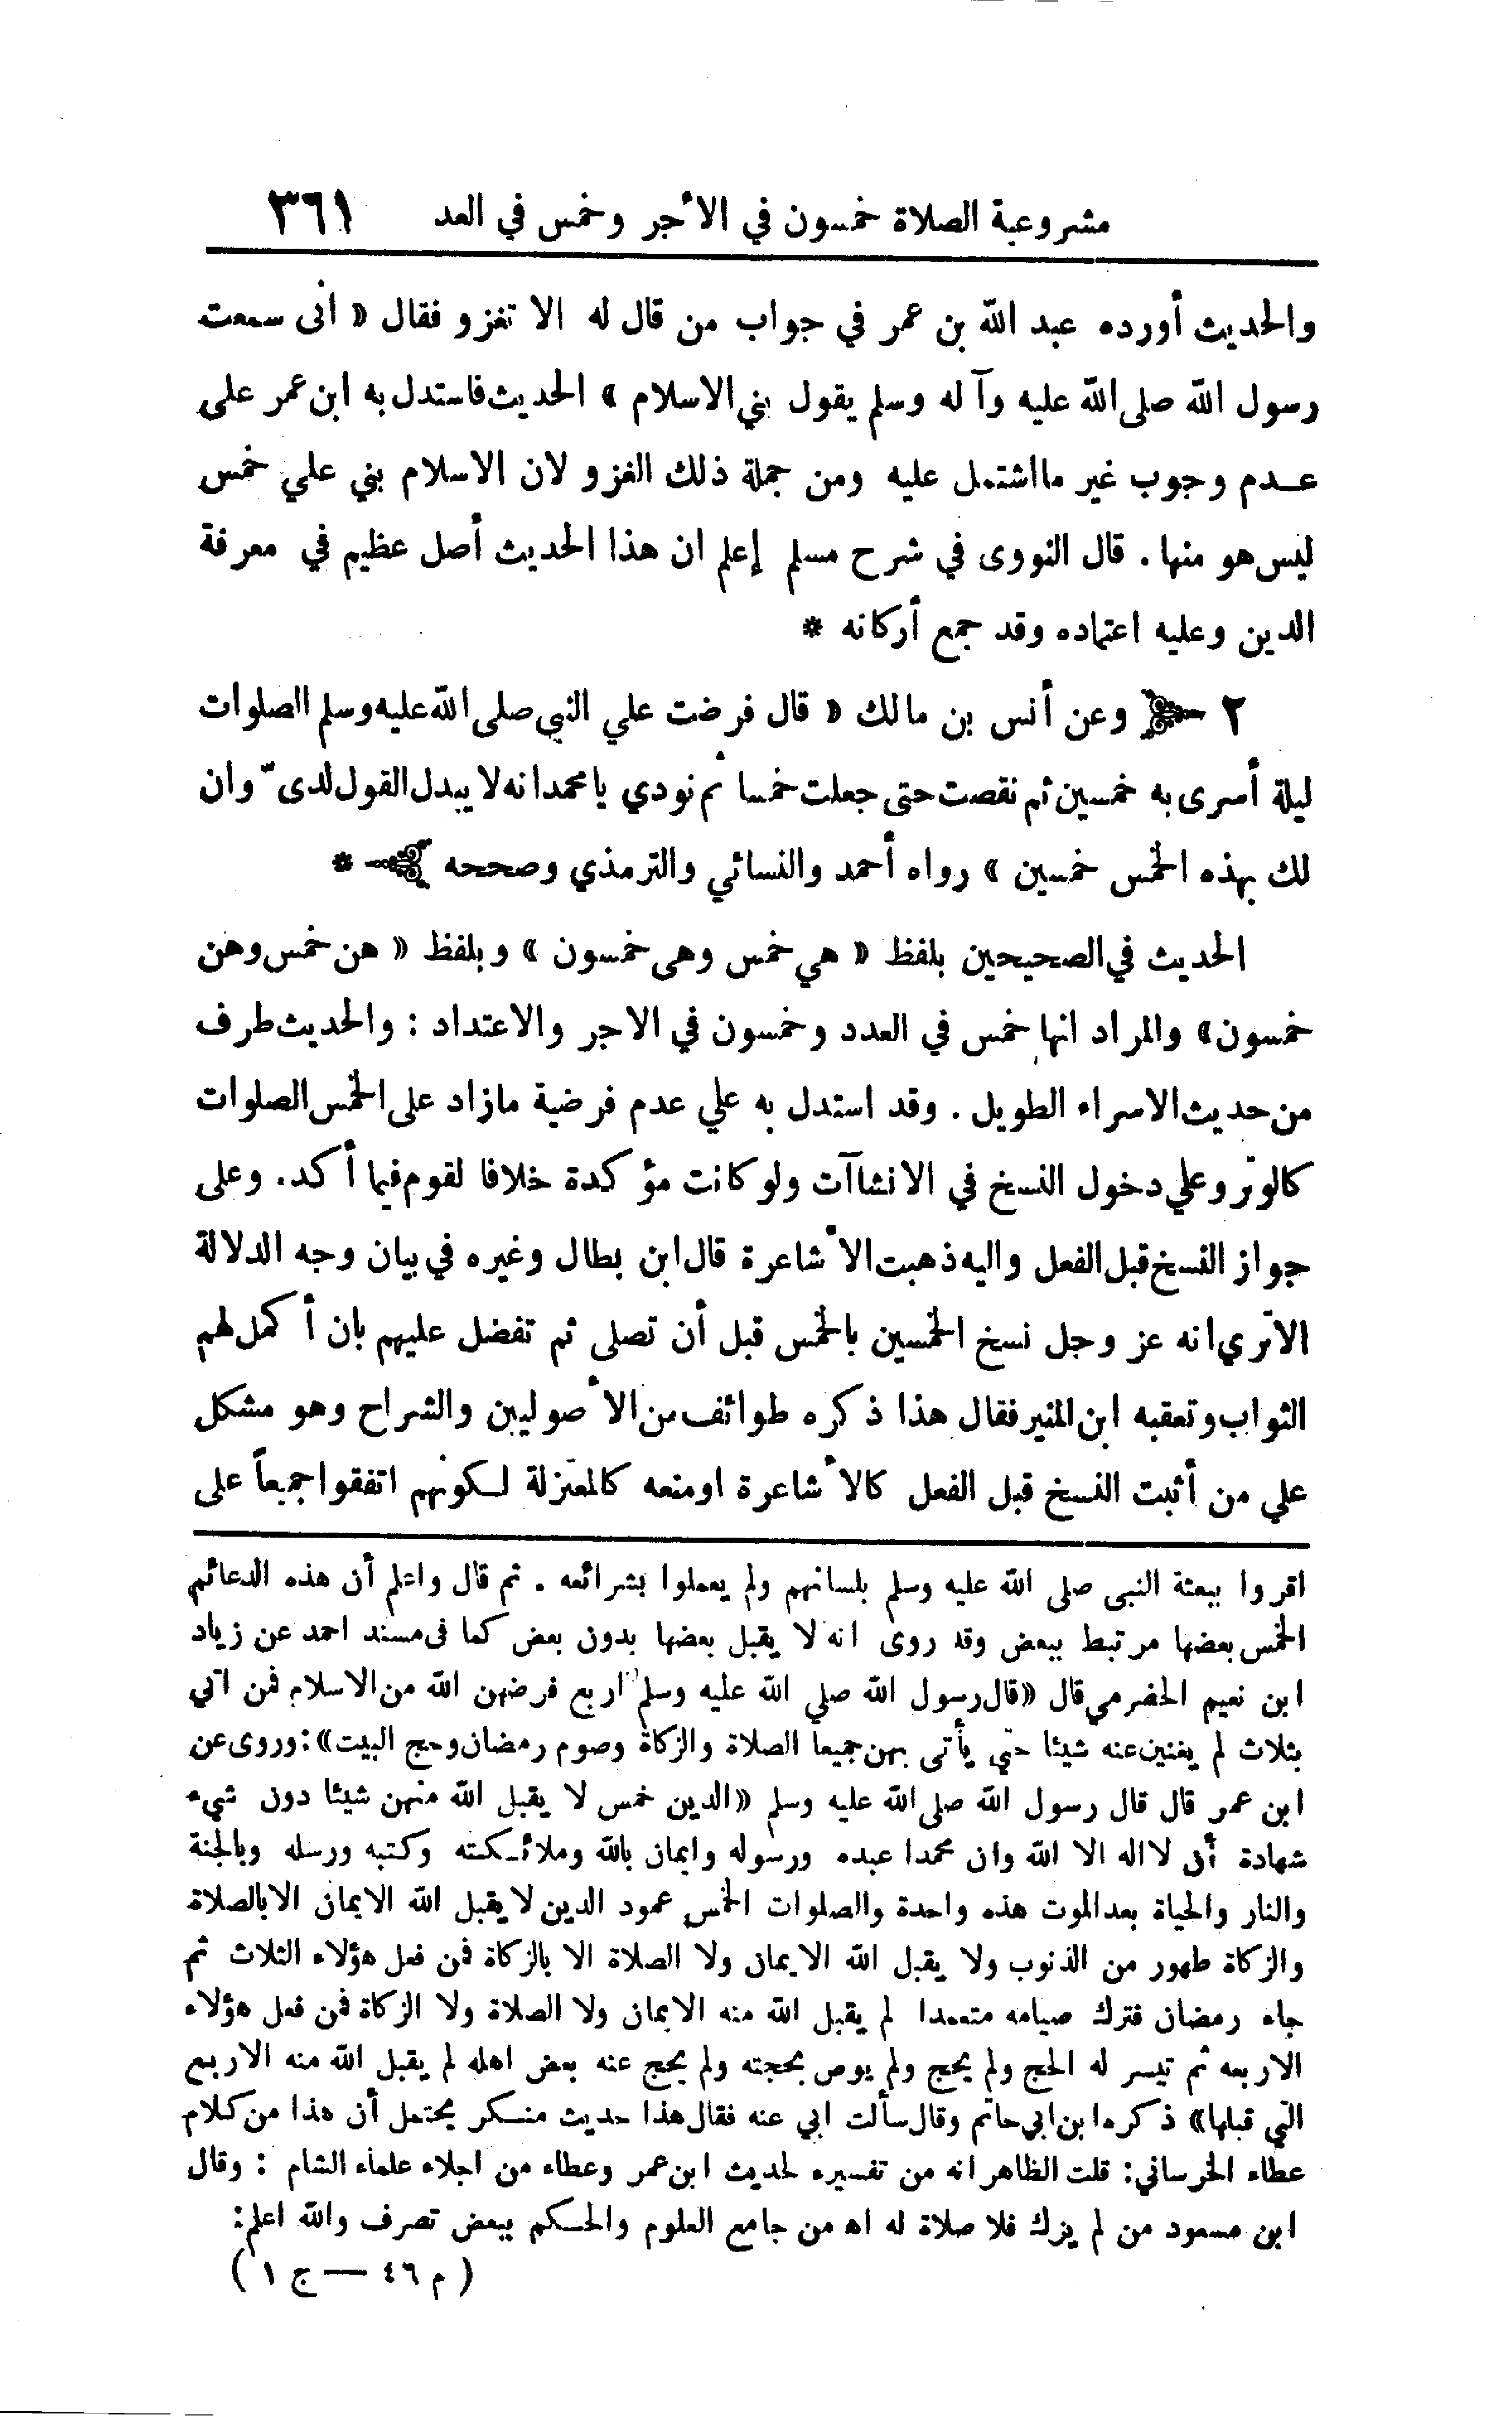 مشروعية الصلاة خمسون في الأجر وخمس في العد ٣٦١
والحديث أورده عبد الله بن عمر في جواب من قال له الا تغزو فقال « انى سمعت
رسول الله صلى الله عليه وآله وسلم يقول بني الاسلام » الحديث فاستدل به ابن عمر على
عدم وجوب غير ما اشتمل عليه ومن جملة ذلك الغزو لان الاسلام بني علي خمس
ليس هو منها . قال النووى في شرح مسلم إعلم ان هذا الحديث أصل عظيم في معرفة
الدين وعليه اعتماده وقد جمع أركانه *
٢ وعن أنس بن مالك « قال فرضت علي النبي صلى الله عليه وسلم الصلوات
ليلة أسرى به خمسين ثم نقصت حتى جعلت خمسا ثم نودي يا محمد انه لا يبدل القول لدىّ وان
لك بهذه الخمس خمسين » رواه أحمد والنسائي والترمذي وصححه *
الحديث في الصحيحين بلفظ « هي خمس وهى خمسون » وبلفظ « هن خمس وهن
خمسون» والمراد انها خمس في العدد وخمسون في الاجر والاعتداد : والحديث طرف
من حديث الاسراء الطويل . وقد استدل به علي عدم فرضية مازاد على الخمس الصلوات
كالوتر وعلي دخول النسخ في الانشاآت ولو كانت مؤكدة خلافا لقوم فيما أكد . وعلى
جواز النسخ قبل الفعل واليه ذهبت الأشاعرة قال ابن بطال وغيره في بيان وجه الدلالة
الاترى انه عز وجل نسخ الخمسين بالخمس قبل أن تصلى ثم تفضل عليهم بان أكمل لهم
الثواب وتعقبه ابن المنير فقال هذا ذكره طوائف من الأصوليين والشراح وهو مشكل
علي من أثبت النسخ قبل الفعل كالأشاعرة اومنعه كالمعتزلة لكونهم اتفقوا جميعاً على
اقروا ببعثة النبى صلى الله عليه وسلم بلسانهم ولم يعملوا بشرائعه . ثم قال واعلم أن هذه الدعائم
الخمس بعضها مرتبط ببعض وقد روى انه لا يقبل بعضها بدون بعض كما فى مسند احمد عن زياد
ابن نعيم الحضرمي قال «قال رسول الله صلي الله عليه وسلم اربع فرضهن الله من الاسلام فمن اتي
بثلاث لم يغنين عنه شيئا حتي يأتى بهن جميعا الصلاة والزكاة وصوم رمضان وحج البيت»: وروى عن
ابن عمر قال قال رسول الله صلى الله عليه وسلم «الدين خمس لا يقبل الله منهن شيئا دون شيء
شهادة أن لا اله الا الله وان محمدا عبده ورسوله وايمان بالله وملائكته وكتبه ورسله وبالجنة
والنار والحياة بعد الموت هذه واحدة والصلوات الخمس عمود الدين لا يقبل الله الايمان الا بالصلاة
والزكاة طهور من الذنوب ولا يقبل الله الايمان ولا الصلاة الا بالزكاة فمن فعل هؤلاء الثلاث ثم
جاء رمضان فترك صيامه متعمدا لم يقبل الله منه الايمان ولا الصلاة ولا الزكاة فمن فعل هؤلاء
الاربعه ثم تيسر له الحج ولم يحج ولم يوص بحجته ولم يحج عنه بعض اهله لم يقبل الله منه الاربع
التي قبلها» ذكره ابن ابي حاتم وقال سألت ابي عنه فقال هذا حديث منكر يحتمل أن هذا من كلام
عطاء الخرساني: قلت الظاهر انه من تفسيره لحديث ابن عمر وعطاء من اجلاء علماء الشام : وقال
ابن مسعود من لم يزك فلا صلاة له اه من جامع العلوم والحكم ببعض تصرف والله اعلم:
( م ٤٦ — ج ١ )